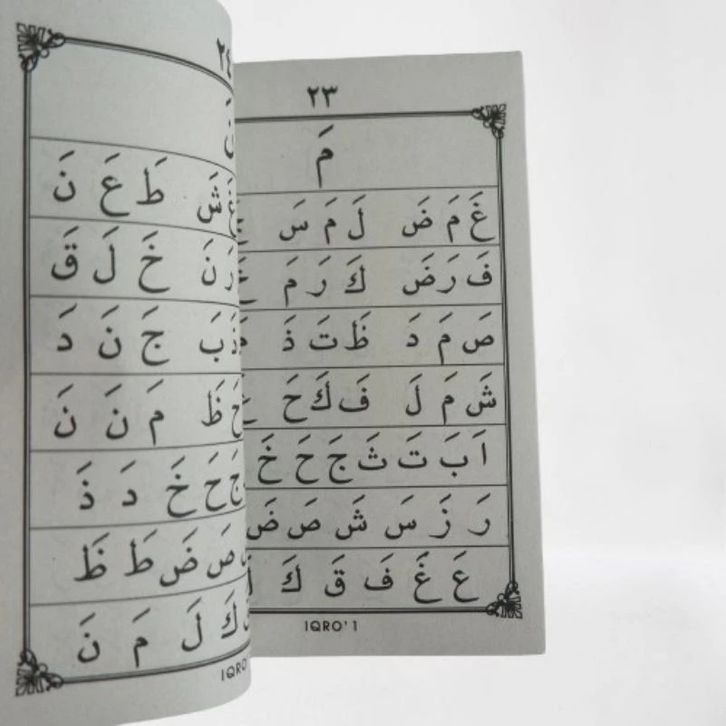 ٢٣
مَ
غَ مَ ضَ لَ مَ سَ
فَ رَ ضَ كَ رَ مَ
صَ مَ دَ ظَ تَ ذَ
شَ مَ لَ فَ كَ حَ
اَ بَ تَ ثَ جَ حَ خَ
رَ زَ سَ شَ صَ ضَ
عَ غَ فَ قَ كَ
IQRO' 1
٢٤
شَ طَ عَ نَ
رَ نَ خَ لَ قَ
بَ جَ نَ دَ
ظَ مَ نَ نَ
جَ حَ خَ دَ ذَ
صَ ضَ طَ ظَ
كَ لَ مَ نَ
IQRO